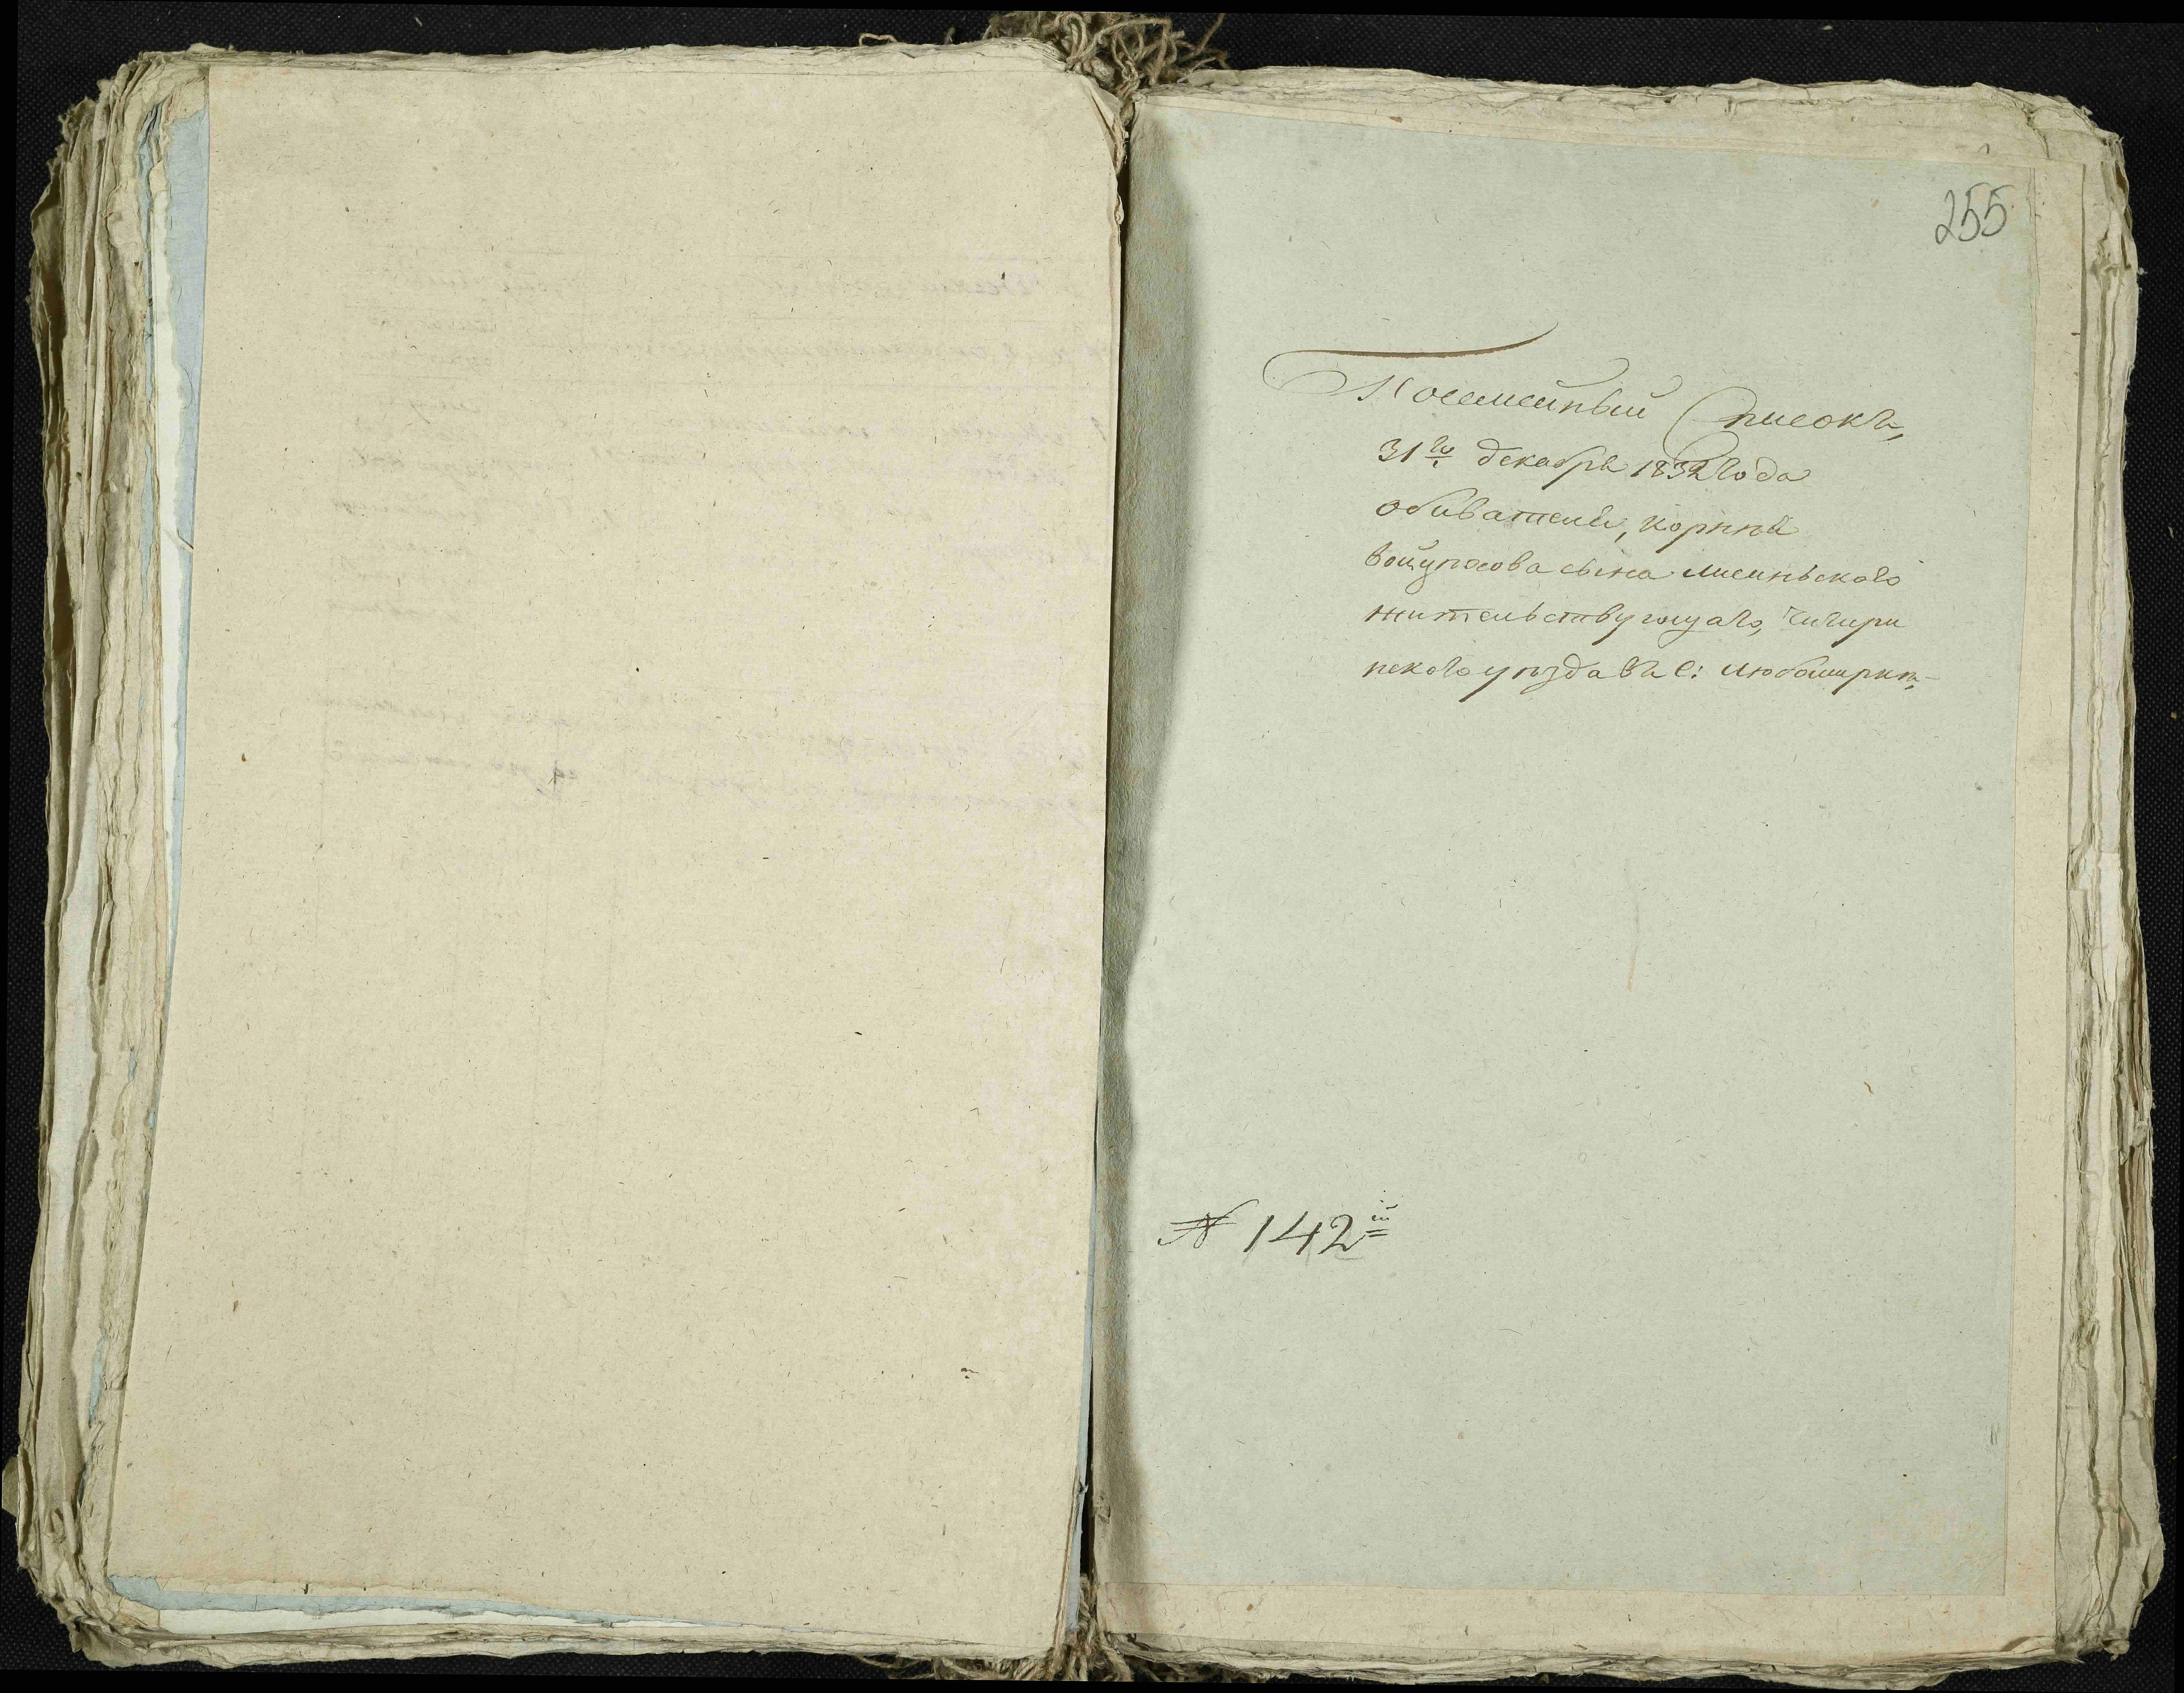 255
Посемейный Списокъ,
31го декабря 1832 года
обивателя, корнея
сына лисиньского
жительствующаго, Чигири
нского уъзда въ с: Любомирке,
№ 142й